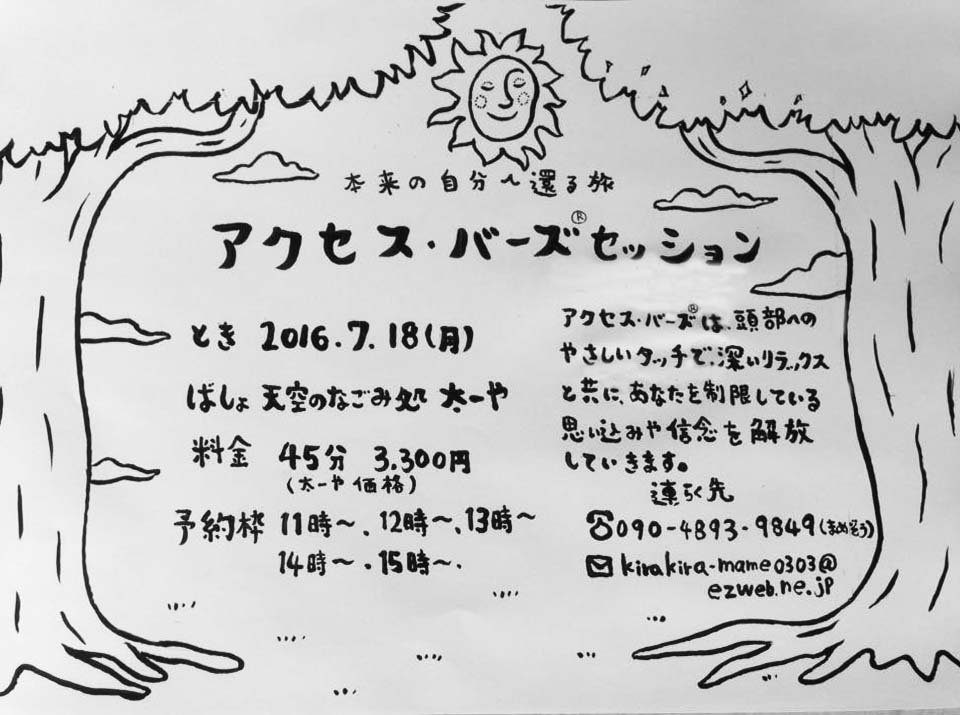 本来の自分へ還る旅
アクセス・バーズ®セッション
とき 2016.7.18(月)
ばしょ 天空のなごみ処 太一や
料金 45分 3,300円
(太一や価格)
予約枠 11時〜、12時〜、13時〜
14時〜・15時〜・
アクセス・バーズ®は、頭部への
やさしいタッチで、深いリラックス
と共に、あなたを制限している
思い込みや信念を解放
していきます。
連らく先
☎090-4893-9849(まめぞう)
✉kirakira-mame0303@
ezweb.ne.jp